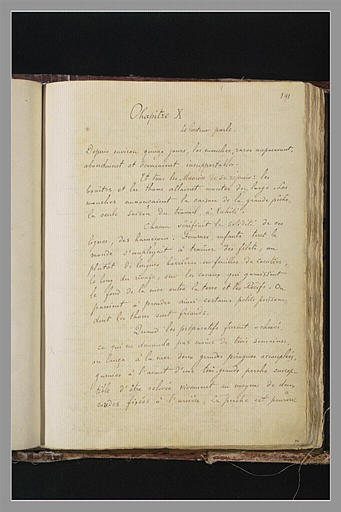 191
Chapitre X
Le conteur parle.
Depuis environ quinze jours, les mouches, rares auparavant,
abondaient et devenaient insupportables.
Et tous les Maories de se réjouir: les
bonites et les thons allaient monter du large. Les
mouches annonçaient la saison de la grande pêche,
la seule saison du travail, à Tahiti.
Chacun vérifiait la solidité de ses
lignes, des hameçons. Femmes, enfants, tout le
monde s'employait à traîner des filets, ou
plutôt de longues barrières en feuilles de cocotier,
le long du rivage, sur les coraux qui garnissent
le fond de la mer entre la terre et les récifs. On
parvient à prendre ainsi certains petits poissons,
dont les thons sont friands.
Quand les préparatifs furent achevés,
ce qui ne demanda pas moins de trois semaines,
on lança à la mer deux grandes pirogues accouplées,
garnies à l'avant d'une très grande perche suscep-
tible d'être relevée vivement au moyen de deux
cordes fixées à l'arrière. La perche est pourvue